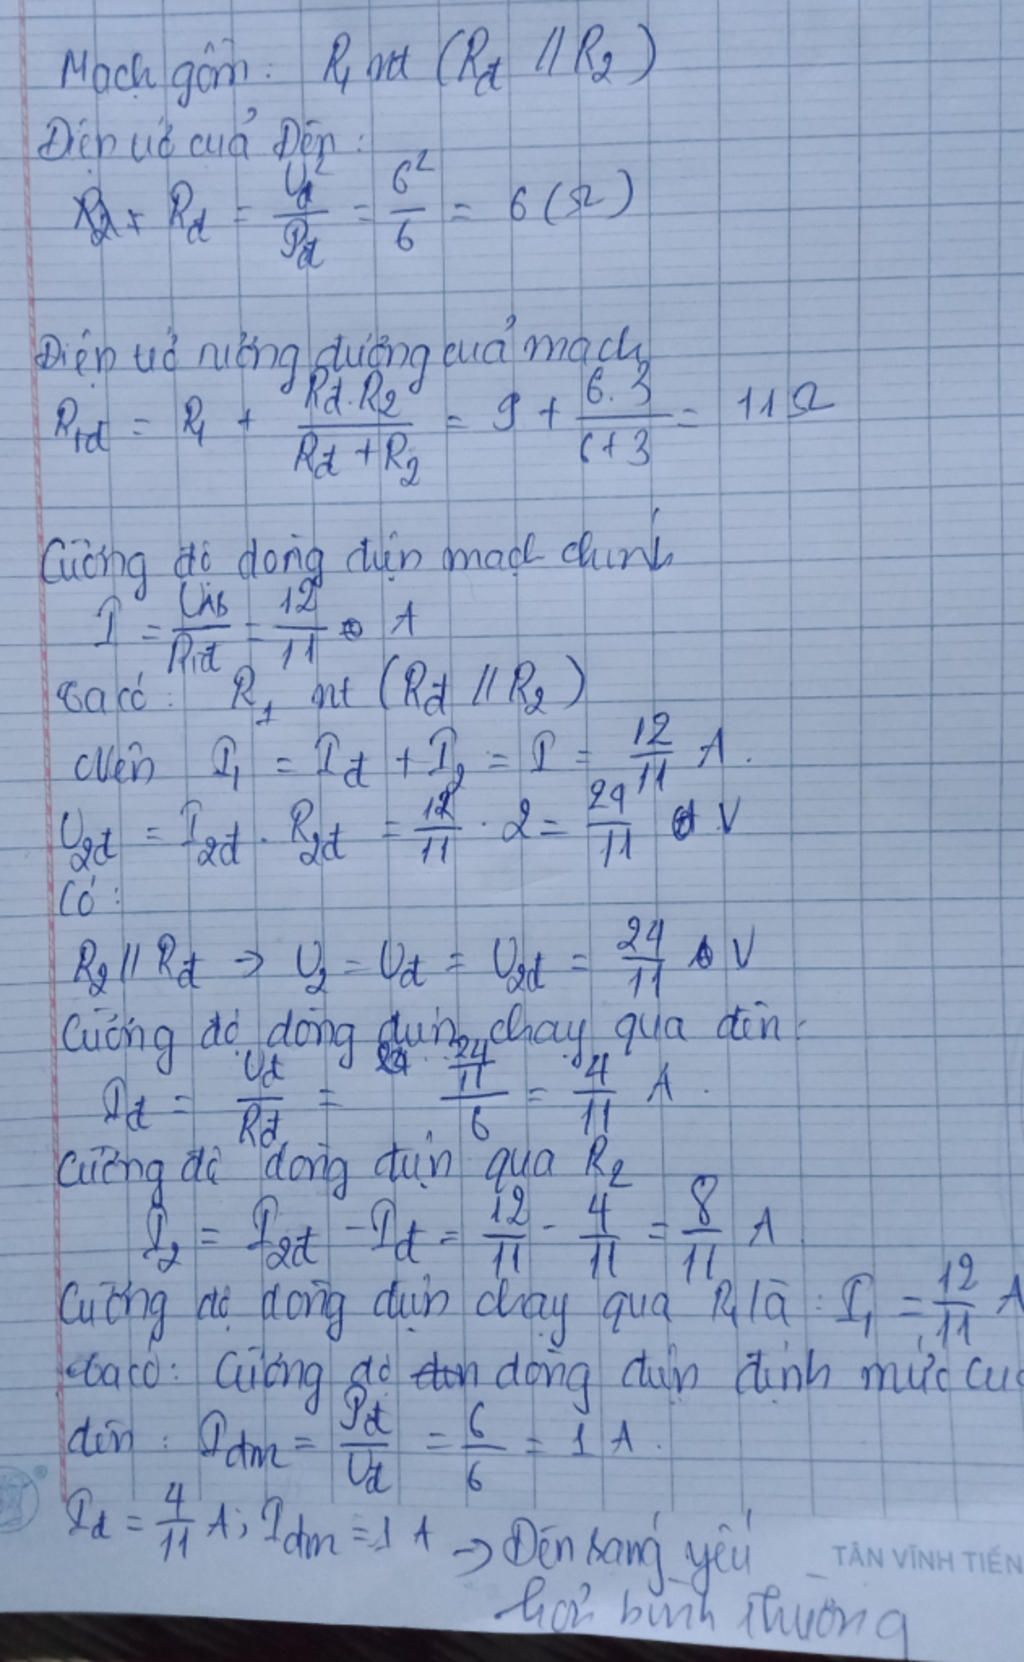 Mạch gồm: R₁ nt (Rđ // R₂)
Điện trở của Đèn:
Rđ = Uđ²/Pđ = 6²/6 = 6 (Ω)
Điện trở tương đương của mạch
Rtđ = R₁ + Rđ.R₂/(Rđ + R₂) = 9 + 6.3/(6+3) = 11Ω
Cường độ dòng điện mạch chính
I = UAB/Rtđ = 12/11 A
Ta có: R₁ nt (Rđ // R₂)
Nên I₁ = Iđ + I₂ = I = 12/11 A.
U₂đ = I₂đ . R₂đ = 12/11 . 2 = 24/11 V
Có:
R₂ // Rđ → U₂ = Uđ = U₂đ = 24/11 V
Cường độ dòng điện chạy qua đèn:
Iđ = Uđ/Rđ = (24/11)/6 = 4/11 A.
Cường độ dòng điện qua R₂
I₂ = I₂đ - Iđ = 12/11 - 4/11 = 8/11 A
Cường độ dòng điện chạy qua R₁ là: I₁ = 12/11 A
Ta có: Cường độ dòng điện định mức củ
đèn: Iđm = Pđ/Uđ = 6/6 = 1 A.
Iđ = 4/11 A; Iđm = 1 A → Đèn sáng yếu
hơn bình thường
TÂN VĨNH TIẾN